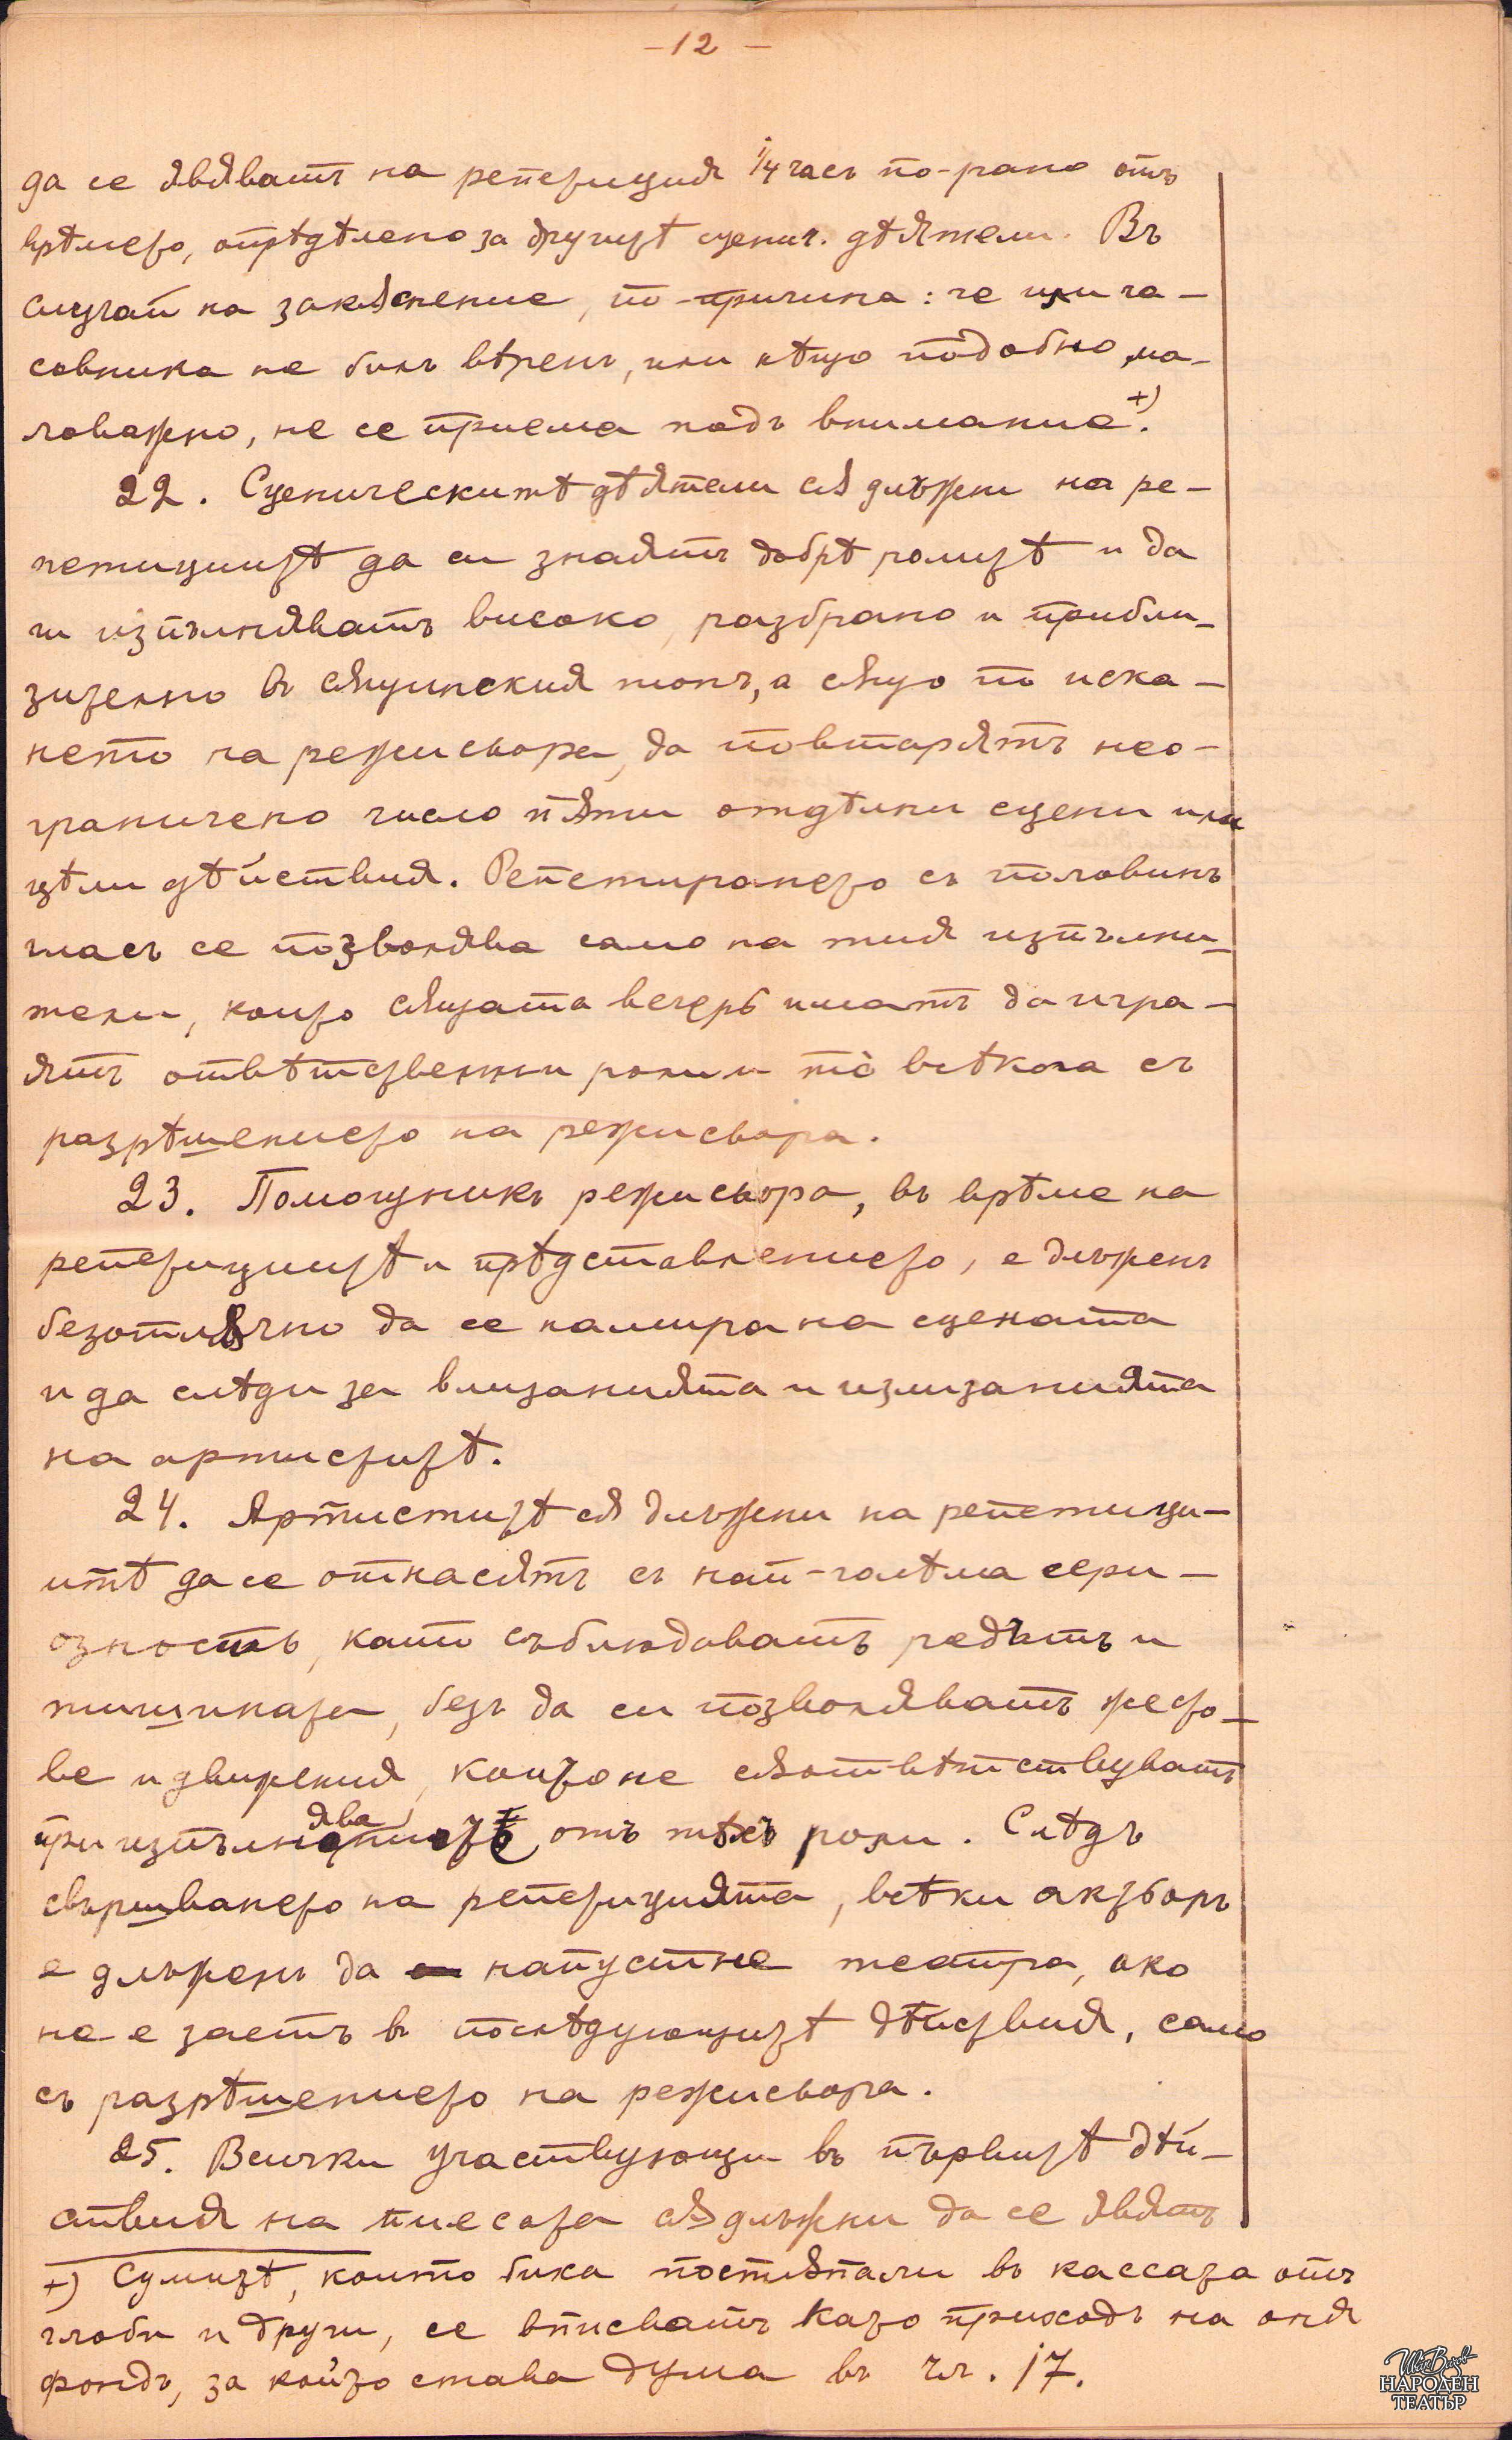 – 12 –
да се явяватъ на репетиция 1/4 часъ по-рано отъ
врѣмето, опрѣдѣлено за другитѣ сценич. дѣятели. Въ
случай на закъснение, по-причина: че или ча–
совника не билъ вѣренъ, или нѣщо подобно, ма–
ловажно, не се приема подъ внимание.+)
22. Сценическитѣ дѣятели сѫ длъжни на ре–
петициитѣ да си знаятъ добрѣ ролитѣ и да
ги изпълняватъ високо, разбрано и прибли–
зително въ сѫщинския тонъ, а сѫщо по иска–
нето на режисьора, да повтарятъ нео–
граничено число пѫти отдѣлни сцени или
цѣли дѣйствия. Репетирането съ половинъ
гласъ се позволява само на тия изпълни–
тели, които сѫщата вечерь иматъ да игра–
ятъ отвѣтствени роли и то̀ всѣкога съ
разрѣшението на режисьора.
23. Помощникъ режисьора, въ врѣме на
репетициитѣ и прѣдставлението, е длъженъ
безотлѫчно да се намира на сцената
и да слѣди за влизанията и излизанията
на артиститѣ.
24. Артиститѣ сѫ длъжни на репетици–
итѣ да се отнасятъ съ най-голѣма сери–
озность, като съблюдаватъ редътъ и
тишината, безъ да си позволяватъ жесто–
ве и движения, които не сѫответствуватъ
при изпълняванитѣ отъ тѣхъ роли. Слѣдъ
свършването на репетицията, всѣки актьоръ
е длъженъ да напустне театра, ако
не е заетъ въ послѣдующитѣ дѣйствия, само
съ разрѣшението на режисьора.
25. Всички участвующи въ първитѣ дѣй–
ствия на пиесата сѫ длъжни да се явятъ
+) Сумитѣ, които биха постѫпали въ кассата отъ
глоби и други, се вписватъ като приходъ на оня
фондъ, за който става дума въ чл. 17.
ИВАН ВАЗОВ
НАРОДЕН
ТЕАТЪР